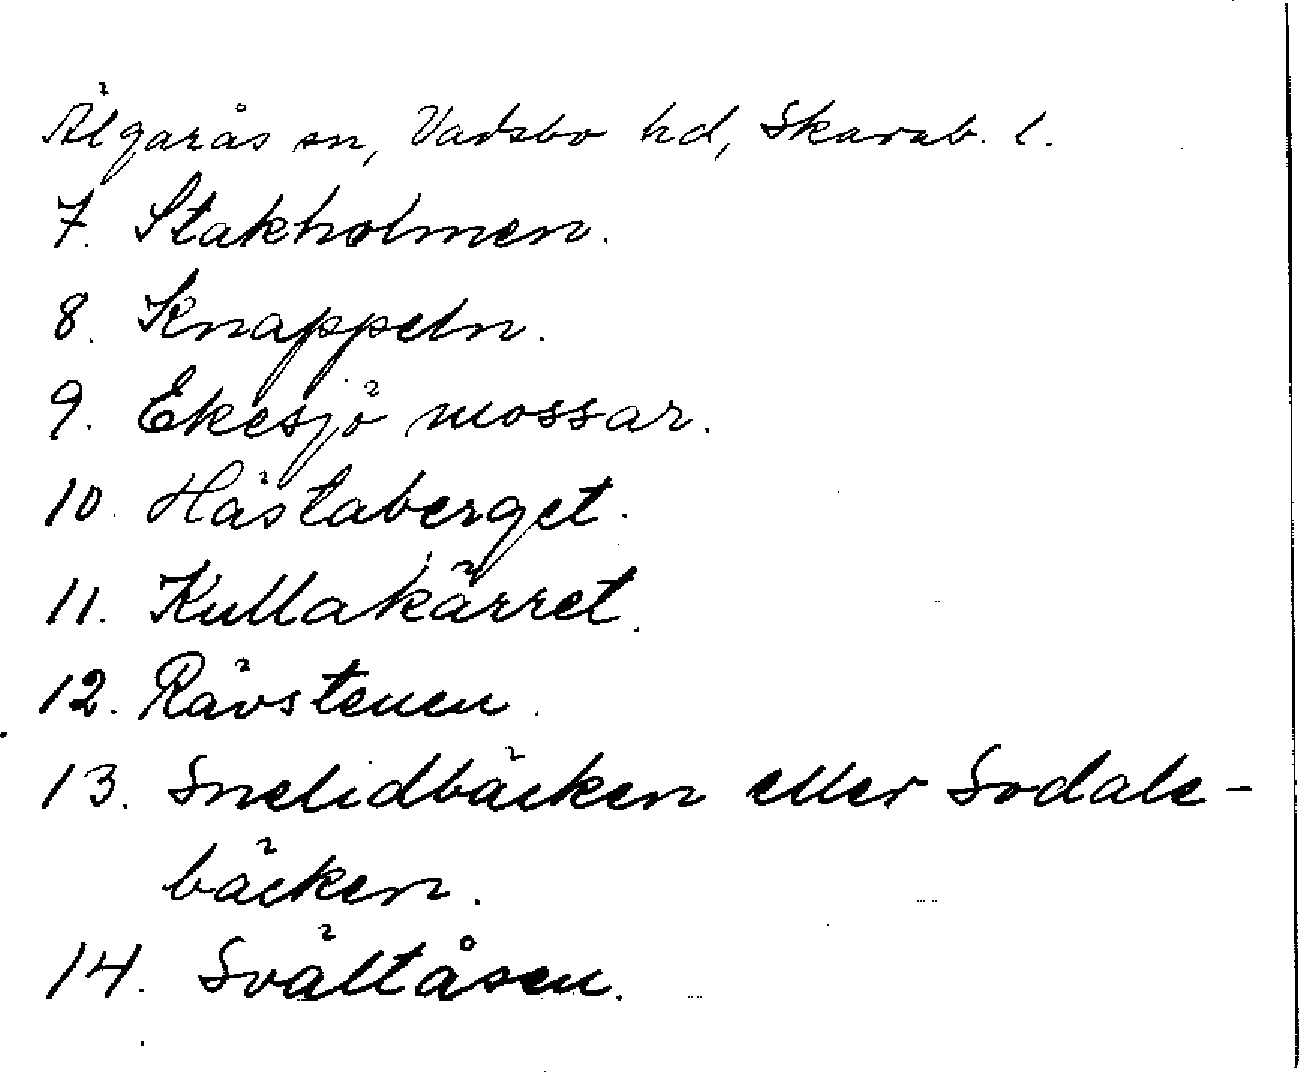 Älgarås sn, Vadsbo hd, Skarab. l.
7. Stakholmen.
8. Knappeln.
9. Ekesjö mossar.
10. Hästaberget.
11. Kullakärret.
12. Rävstenen.
13. Snelidbäcken eller Sodale-
bäcken.
14. Svältåsen.